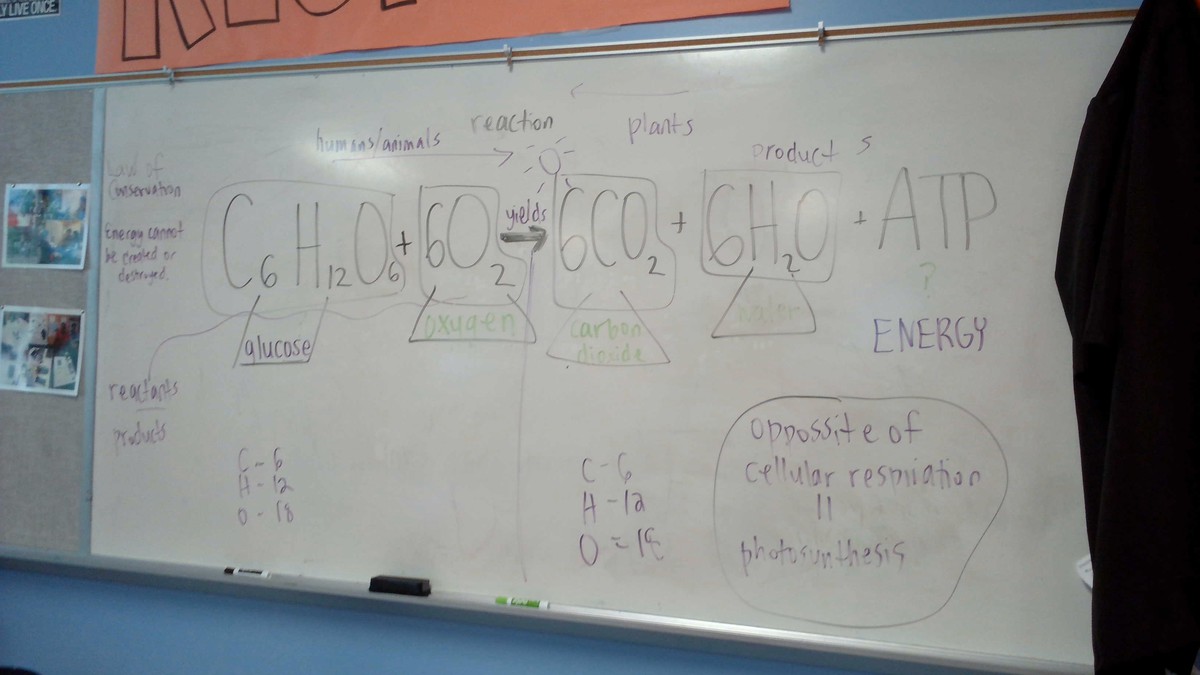 Y LIVE ONCE
reaction
plants
humans/animals
products
Law of
Conservation
Energy cannot
be created or
destroyed.
C6H12O6 + 6O2 yields 6CO2 + 6H2O + ATP
?
glucose
oxugen
carbon
dioxide
water
ENERGY
reactants
products
C - 6
H - 12
O - 18
C - 6
H - 12
O = 18
oppossite of
cellular respiration
=
photosunthesis